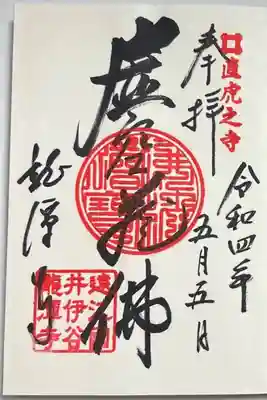 直虎之寺
奉拝
令和四年
五月五日
虚空蔵佛
龍潭寺
遠江國
井伊谷
龍潭寺